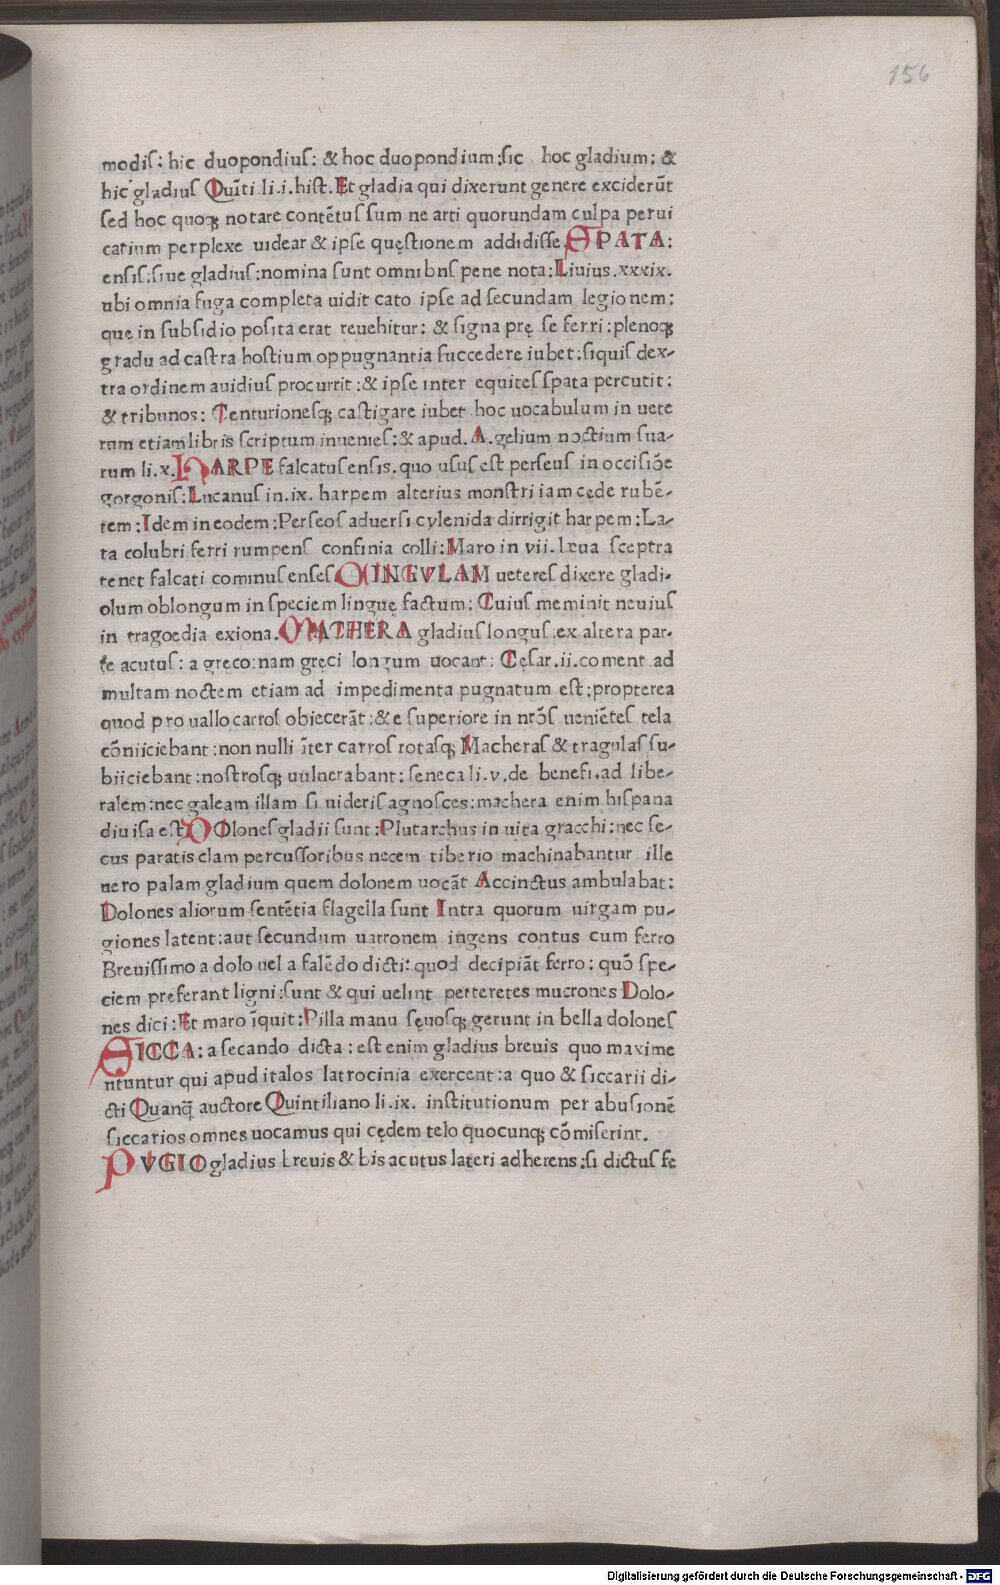 156
modiſ: hic duopondiuſ: & hoc duopondium:ſic hoc gladium: &
hic gladius Quīti li.i.hiſt.Et gladia qui dixerunt genere exciderūt
ſed hoc quoqꝫ notare contētuſ ſum ne arti quorundam culpa perui
catium perplexe uidear & ipſe quęſtionem addidiſſe SPATA:
enſiſ:ſiue gladiuſ:nomina ſunt omnibnſ pene nota:Liuius.xxxix.
ubi omnia fuga completa uidit cato ipſe ad ſecundam legionem:
quę in ſubſidio poſita erat reuehitur: & ſigna prę ſe ferri:plenoqꝫ
gradu ad caſtra hoſtium oppugnantia ſuccedere iubet:ſiquiſ dex-
tra ordinem auidiuſ procurrit:& ipſe inter equiteſ ſpata percutit:
& tribunos: Centurioneſqꝫ caſtigare iubet hoc uocabulum in uete
rum etiam libris ſcriptum inuenieſ:& apud. A.gelium noctium ſua-
rum li.x.HARPE falcatuſ enſis.quo uſuſ eſt perſeuſ in occiſiōe
gorgoniſ:Lucanuſ in.ix. harpem alterius monſtri iam cęde rubē-
tem:Idem in eodem:Perſeoſ aduerſi cylenida dirrigit harpem:La-
ta colubri ferri rumpenſ confinia colli:Maro in vii.leua ſceptra
tenet falcati cominuſ enſeſ QINGVLAM uetereſ dixere gladi-
olum oblongum in ſpeciem linguę factum: Cuiuſ meminit neuiuſ
in tragoedia exiona.MACHERA gladiuſ longuſ:ex altera par-
te acutuſ: a gręco:nam gręci longum uocant: Cęſar.ii.coment ad
multam noctem etiam ad impedimenta pugnatum eſt:propterea
quod pro uallo carroſ obiecerāt:& e ſuperiore in nrōſ ueniēteſ tela
cōniiciebant:non nulli īter carroſ rotaſqꝫ Macheraſ & tragulaſ ſu-
biiciebant:noſtroſqꝫ uulnerabant: ſeneca li.v.de benefi.ad libe-
ralem:nec galeam illam ſi uideriſ agnoſces:machera enim hiſpana
diuiſa eſt DOloneſ gladii ſunt:Plutarchus in uita gracchi:nec ſe-
cus paratis clam percuſſoribus necem tiberio machinabantur ille
uero palam gladium quem dolonem uocāt Accinctus ambulabat:
Dolones aliorum ſentētia flagella ſunt Intra quorum uirgam pu-
giones latent:aut ſecundum uarronem ingens contus cum ferro
Breuiſſimo a dolo uel a falēdo dicti: quod decipiāt ferro: quō ſpe-
ciem preferant ligni:ſunt & qui uelint perteretes mucrones Dolo-
nes dici:Et maro īquit:Pilla manu ſęuoſqꝫ gerunt in bella doloneſ
SICCA: a ſecando dicta: eſt enim gladius breuis quo maxime
ntuntur qui apud italos latrocinia exercent:a quo & ſiccarii di-
cti Quanq̄ auctore Quintiliano li.ix. inſtitutionum per abuſionē
ſiccarios omnes uocamus qui cędem telo quocunqꝫ cōmiſerint.
PVGIO gladius breuis & bis acutus lateri adherens:ſi dictuſ ſe
Digitalisierung gefördert durch die Deutsche Forschungsgemeinschaft - DFG